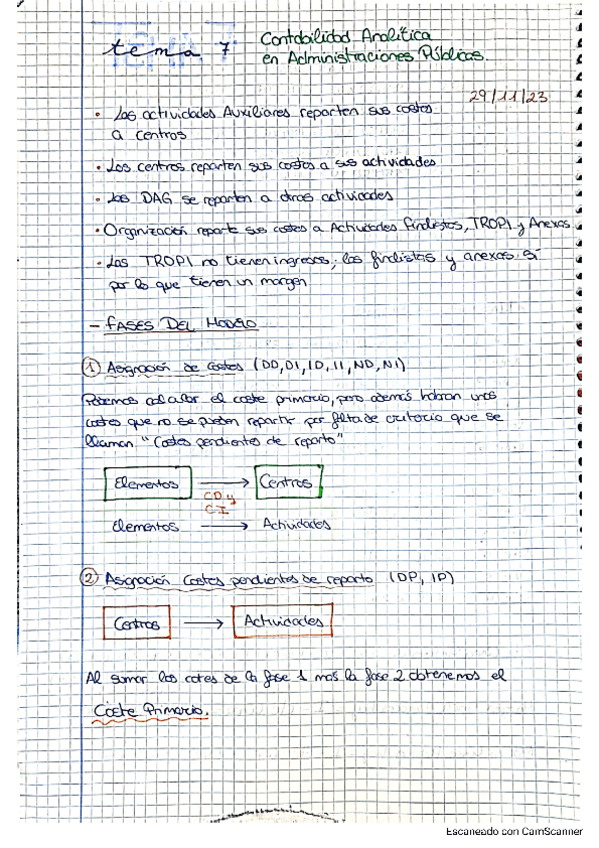 tema 7
Contabilidad Analítica
en Administraciones Públicas.
29/11/23
• Las actividades Auxiliares reparten sus costes
a centros
• Los centros reparten sus costes a sus actividades
• Las DAG se reparten a otras actividades
• Organización reparte sus costes a Actividades finalistas, TROPI y Anexas
• Las TROPI no tienen ingresos, las finalistas y anexas sí
por lo que tienen un margen
- FASES DEL MODELO
① Asignación de costes (DD, DI, ID, II, ND, NI)
Podemos calcular el coste primario, pero además habran unos
costes que no se pueden repartir por falta de criterio que se
llaman "Costes pendientes de reparto"
Elementos → Centros
CD y
CI
Elementos → Actividades
② Asignación Costes pendientes de reparto (DP, IP)
Centros → Actividades
Al sumar los costes de la fase 1 mas la fase 2 obtenemos el
Coste Primario.
Escaneado con CamScanner